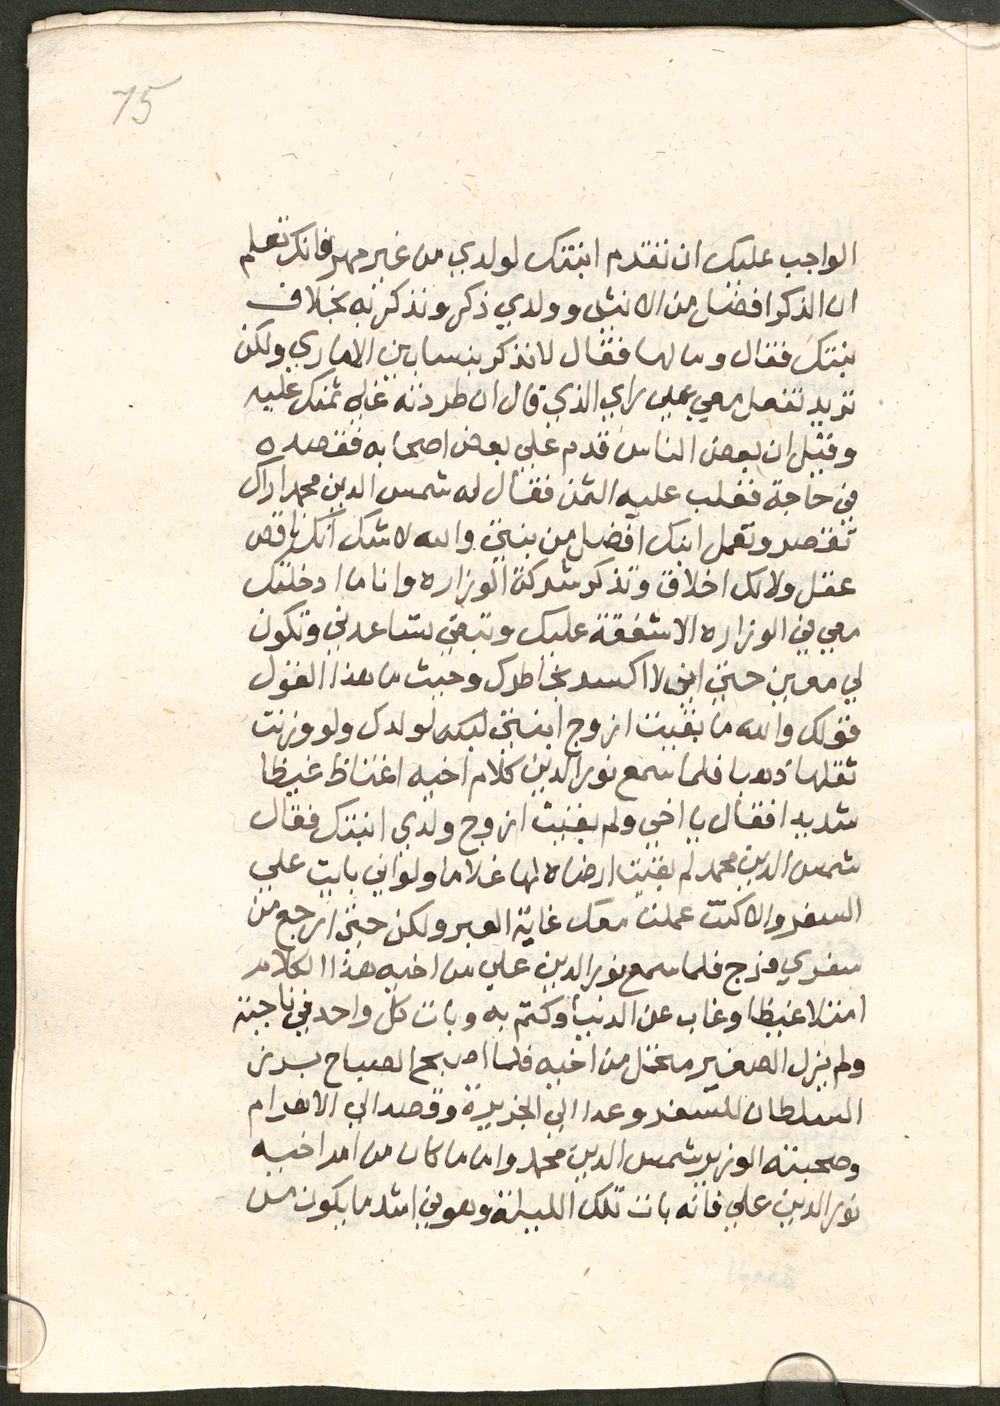 75
الواجب عليك ان تقدم ابنتك لولدي من غير مهر فانك تعلم
ان الذكر افضل من الانثى وولدي ذكر ونذكر به بخلاف
بنتك فقال وما لها فقال لا نذكر بها بين الاماري ولكن
تريد تفعل معي على راي الذي قال ان طردته غالي ثمنك عليه
وقيل ان بعض الناس قدم علي بعض اصحابه فقصده
في حاجة فغلب عليه الثمن فقال له شمس الدين محمد اراك
تقصر وتعمل ابنك افضل من بنتي والله لا شك انك ناقص
عقل ولا لك اخلاق وتذكر شركة الوزاره وانا ما ادخلتك
معي في الوزاره الا شفقة عليك وتبقى تساعدني وتكون
لي معين حتى لا اكسر بخاطرك وحيث ما هذا القول
قولك والله ما بقيت ازوج ابنتي لولدك ولو وزنت
ثقلها ذهبا فلما سمع نور الدين كلام اخيه اغتاظ غيظا
شديدا فقال يا اخي ولم بقيت ازوج ولدي ابنتك فقال
شمس الدين محمد لم بقيت ارضاه لها غلاما ولو اني بايت علي
السفر والا كنت عملت معك غاية العبر ولكن حتى ارجع من
سفري فلما سمع نور الدين علي من اخيه هذا الكلام
امتلا غيظا وغاب عن الدنيا وكتم به وبات كل واحد في ناحيته
ولم يزل الصغير من اخيه فلما اصبح الصباح برز
السلطان للسفر وعدا الي الجزيرة وقصد الي الاهرام
وصحبته الوزير شمس الدين محمد واما ما كان من امر اخيه
نور الدين علي فانه بات تلك الليلة وهو في اشد ما يكون من